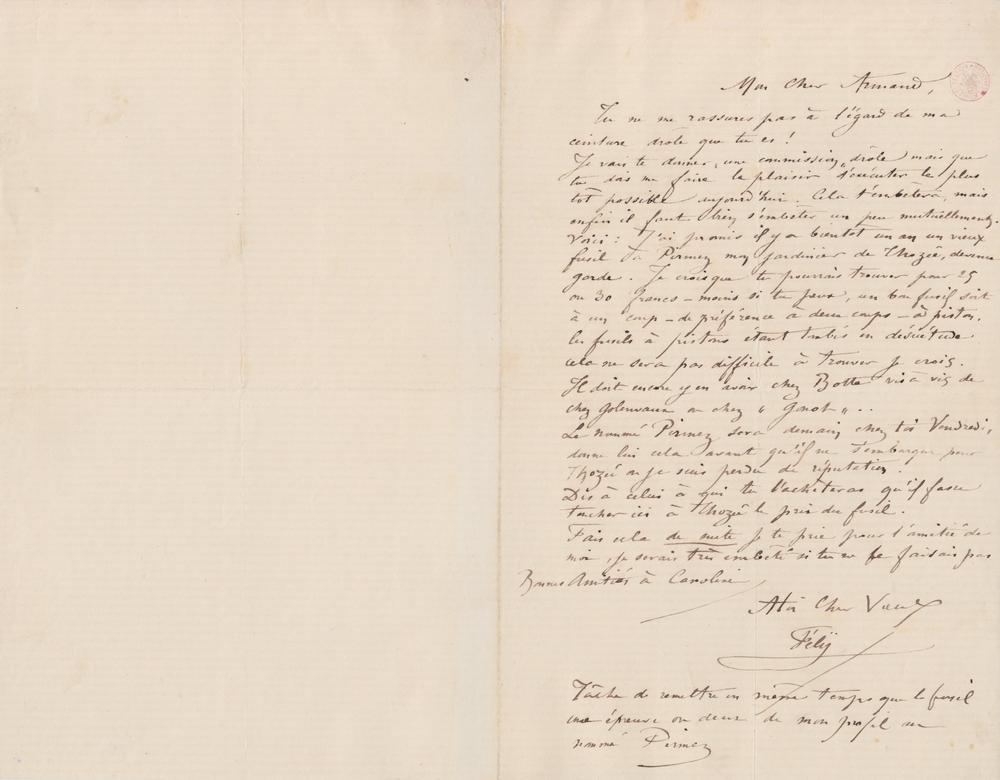 Mon Cher Armand,
Tu ne me rassures pas à l'égard de ma
ceinture drôle que tu es !
Je vais te donner une commission, drôle mais que
tu dois me faire le plaisir d'exécuter le plus
tôt possible aujourd'hui. Cela t'embêtera, mais
enfin il faut bien s'embêter un peu mutuellement.
Voici : J'ai promis il y a bientôt un an un vieux
fusil à Pirmez mon jardinier de Thozée, devenu
garde. Je crois que tu pourrais trouver pour 25
ou 30 francs – moins si tu peux, un bon fusil soit
à un coup – de préférence à deux coups – à piston.
les fusils à pistons étant tombés en désuétude
cela ne sera pas difficile à trouver je crois.
Il doit encore y en avoir chez Botte vis à vis de
chez Golenvaux ou chez " Ganot " ..
Le nommé Pirmez sera demain chez toi Vendredi,
donne lui cela avant qu'il ne s'embarque pour
Thozée ou je suis perdu de réputation.
Dis à celui à qui tu l'achèteras qu'il fasse
toucher ici à Thozée le prix du fusil.
Fais cela de suite je te prie pour l'amitié de
moi, je serais très embêté si tu ne le faisais pas
Bonnes Amitiés à Caroline
A toi Cher Vieux
Fély
Tâche de remettre en même temps que le fusil
une épreuve ou deux de mon profil au
nommé Pirmez